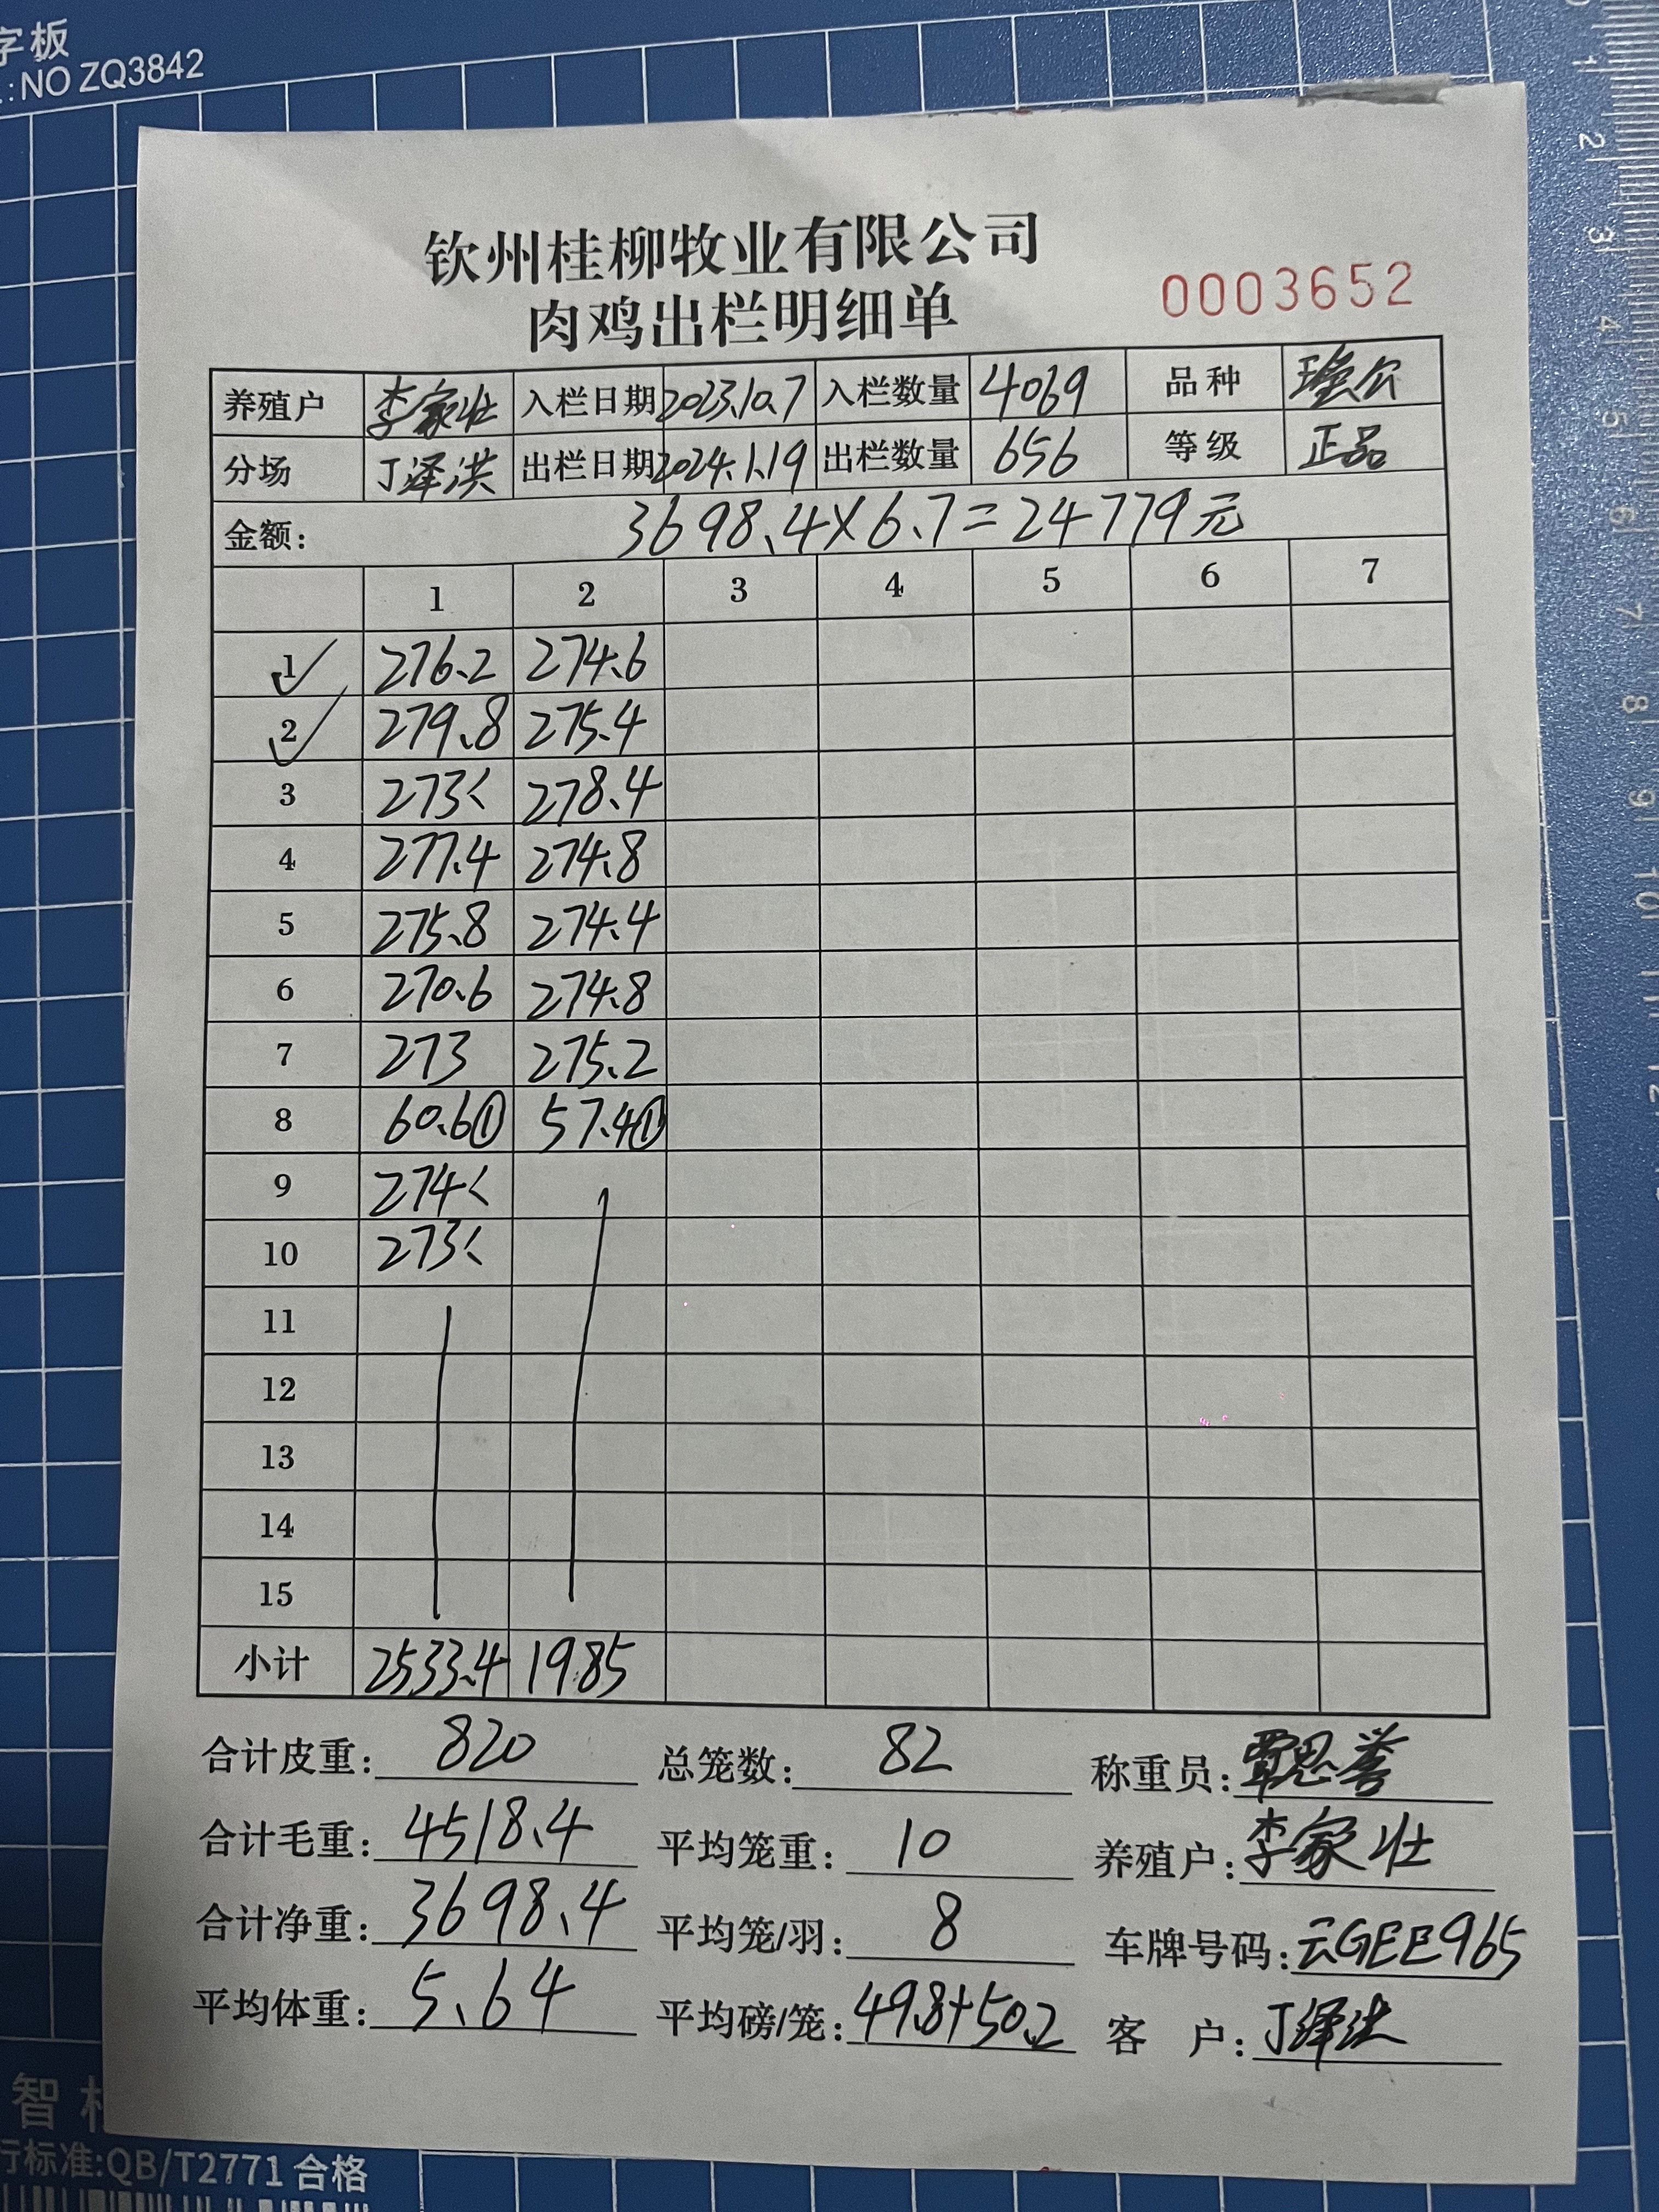 字板
:NO ZQ3842
钦州桂柳牧业有限公司
肉鸡出栏明细单
0003652
养殖户 李家壮 入栏日期 2023.10.7 入栏数量 4069 品种 瑶公
分场 丁泽洪 出栏日期 2024.1.19 出栏数量 656 等级 正品
金额: 3698.4×6.7=24779元
1 2 3 4 5 6 7
1 ✓ 276.2 274.6
2 ✓ 279.8 275.4
3 273< 278.4
4 277.4 274.8
5 275.8 274.4
6 270.6 274.8
7 273 275.2
8 60.6① 57.4①
9 274<
10 273<
11
12
13
14
15
小计 2533.4 1985
合计皮重: 820 总笼数: 82 称重员: 覃思誉
合计毛重: 4518.4 平均笼重: 10 养殖户: 李家壮
合计净重: 3698.4 平均笼/羽: 8 车牌号码: 云GEE965
平均体重: 5.64 平均磅/笼: 49.8+50.2 客 户: 丁泽洪
智
行标准:QB/T2771 合格
1 2 3 4 5 6 7 8 9 10 11 12